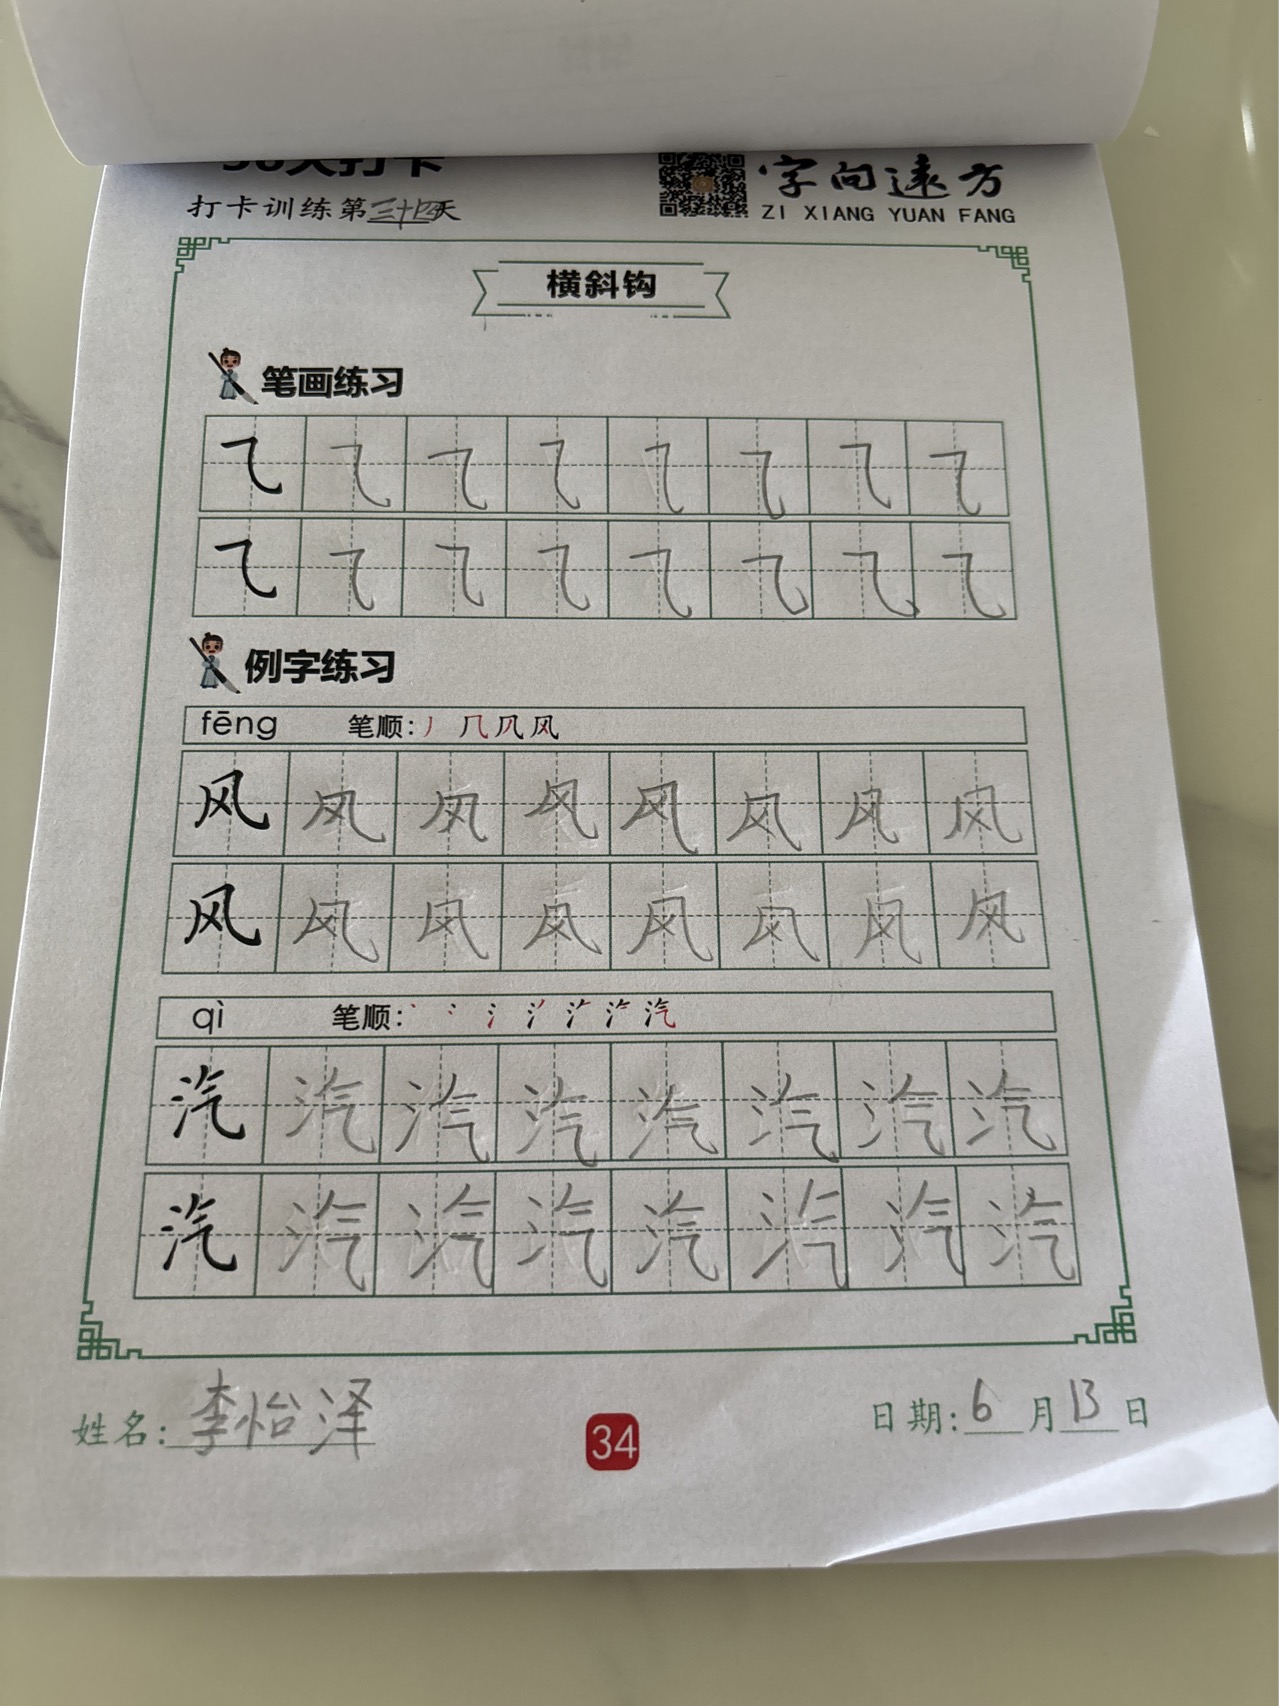 天打卡
字向远方
打卡训练第三十四天
ZI XIANG YUAN FANG
横斜钩
笔画练习
例字练习
fēng 笔顺: 丿 几 凤 风
风 风 风 风 风 风 风 风
风 风 风 风 风 风 风 风
qì 笔顺: 汽
汽 汽 汽 汽 汽 汽 汽 汽
汽 汽 汽 汽 汽 汽 汽 汽
姓名: 李怡泽
34
日期: 6 月 13 日